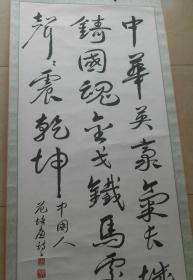 中華英豪氣長城
鑄國魂金戈鐵馬震
聲聲震乾坤
中國人